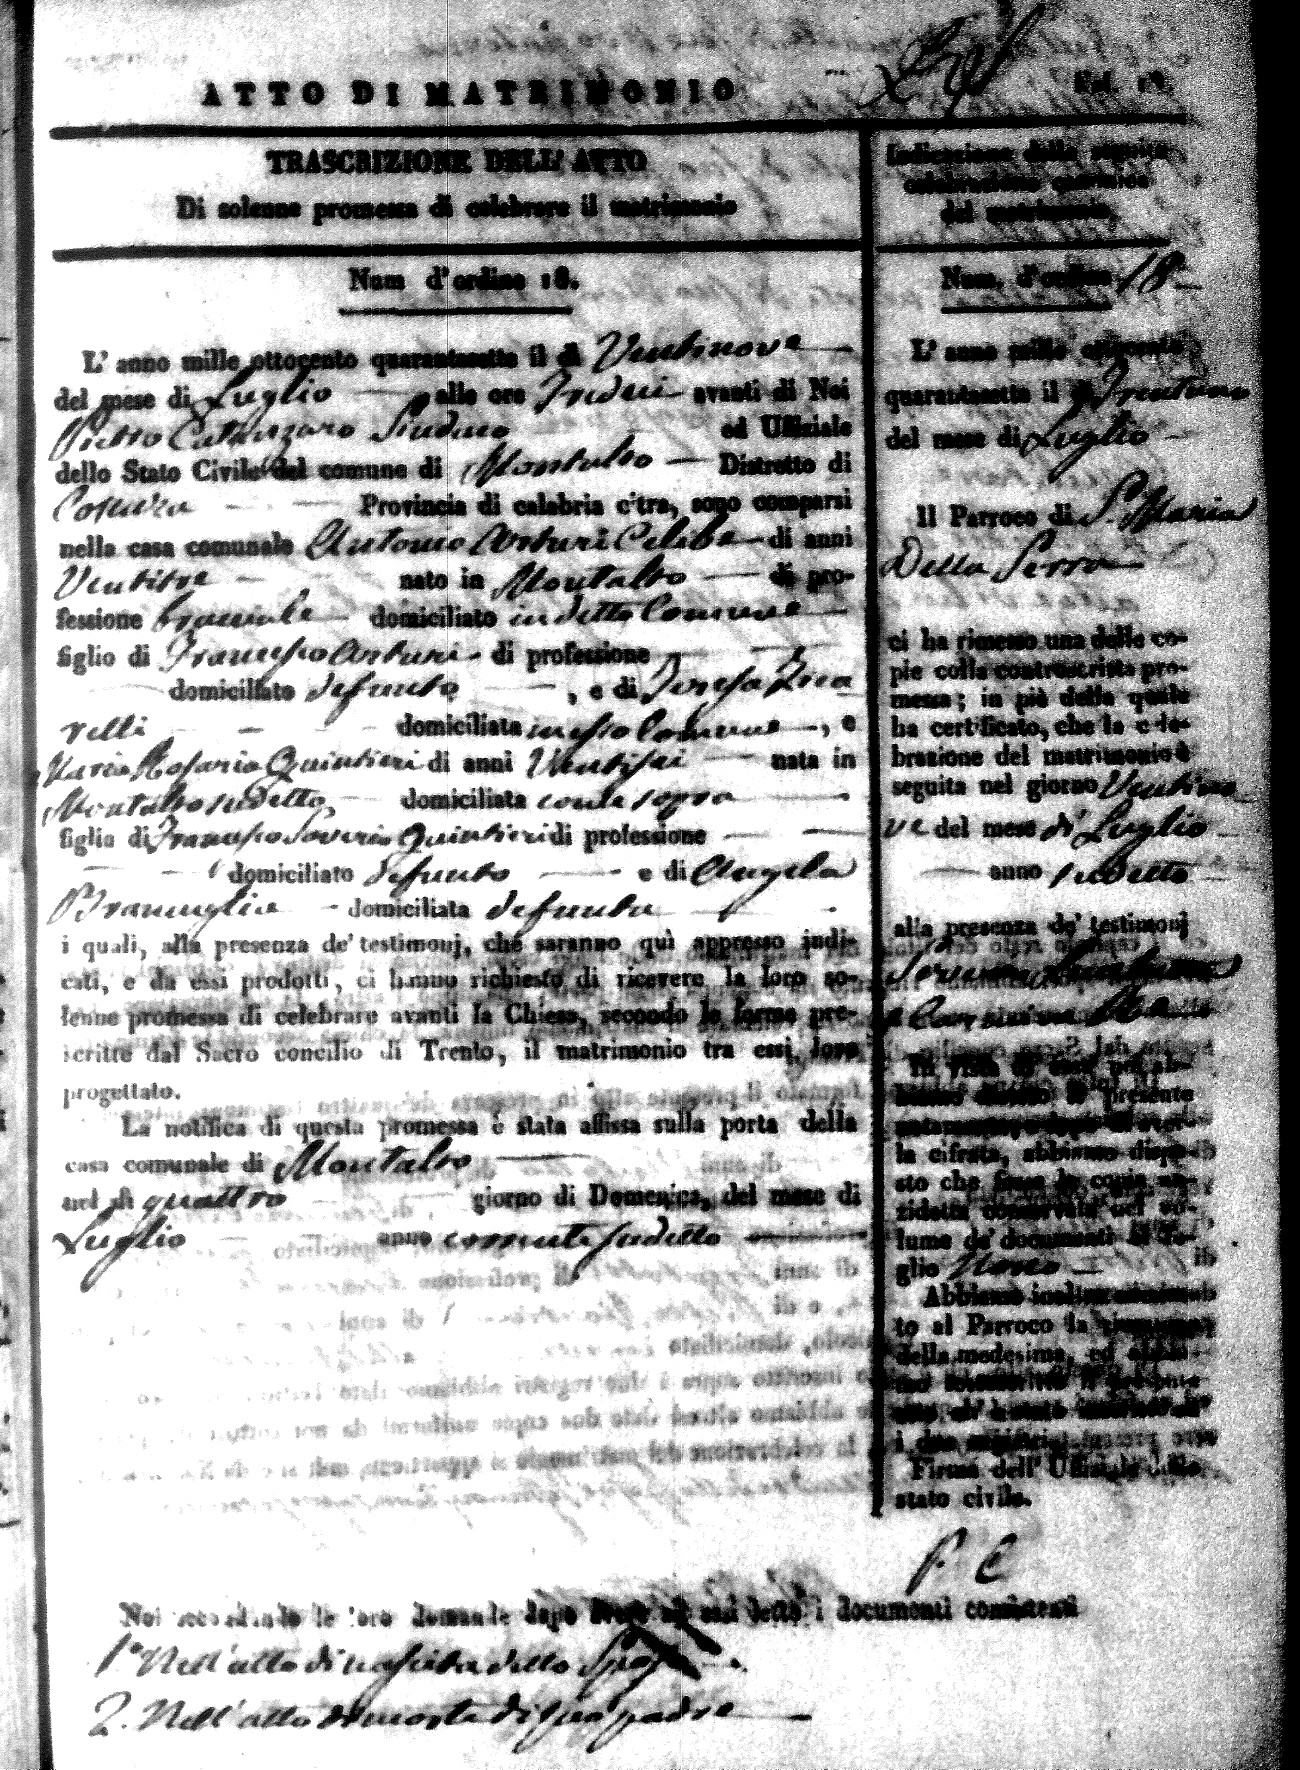 ATTO DI MATRIMONIO
TRASCRIZIONE DELL' ATTO
Di solenne promessa di celebrare il matrimonio
Num d'ordine 18.
L' anno mille ottocento quarantasette il dì Ventinove
del mese di Luglio alle ore Tredici avanti di Noi
Pietro Catanzaro Sindaco ed Uffiziale
dello Stato Civile del comune di Montalto Distretto di
Cosenza Provincia di calabria c'tra, sono comparsi
nella casa comunale Antonio Arturi Celibe di anni
Ventitre nato in Montalto di pro-
fessione domiciliato in detto Comune
figlio di Francesco Arturi di professione
domiciliato defunto , e di Teresa
relli domiciliata in esso Comune , e
Maria Rosaria Quintieri di anni Ventisei nata in
Montalto sudetto domiciliata come sopra
figlia di Francesco Saverio Quintieri di professione
domiciliato defunto e di Angela
Bramuglia domiciliata defunta
i quali, alla presenza de' testimonj, che saranno quì appresso indi-
cati, e da essi prodotti, ci hanno richiesto di ricevere la loro so-
lenne promessa di celebrare avanti la Chiesa, secondo le forme pre-
scritte dal Sacro concilio di Trento, il matrimonio tra essi loro
progettato.
La notifica di questa promessa è stata affissa sulla porta della
casa comunale di Montalto
nel dì quattro giorno di Domenica, del mese di
Luglio anno corrente sudetto
Noi secondando le loro domande dopo avere ad essi letto i documenti consistenti
1.° Nell'atto di nascita dello Sposo
2. Nell'atto di morte di suo padre
Indicazione della seguita
celebrazione canonica
del matrimonio.
Num. d'ordine 18
L' anno mille ottocento
quarantasette il dì Trentuno
del mese di Luglio
Il Parroco di S. Maria
Della Serra
ci ha rimesso una delle co-
pie colla controscritta pro-
messa; in piè della quale
ha certificato, che la cele-
brazione del matrimonio è
seguita nel giorno Ventino
ve del mese di Luglio
anno sudetto
alla presenza de' testimonj
In vista di essa noi ab-
biamo disteso il presente
la cifrata, abbiamo dispo-
sto che fosse la copia an-
zidetta conservata nel vo-
lume de' documenti al fo-
glio Nono
Abbiamo inoltre
to al Parroco la
della medesima, ed abbia-
i due registri
Firma dell' Uffiziale dello
stato civile.
P. C